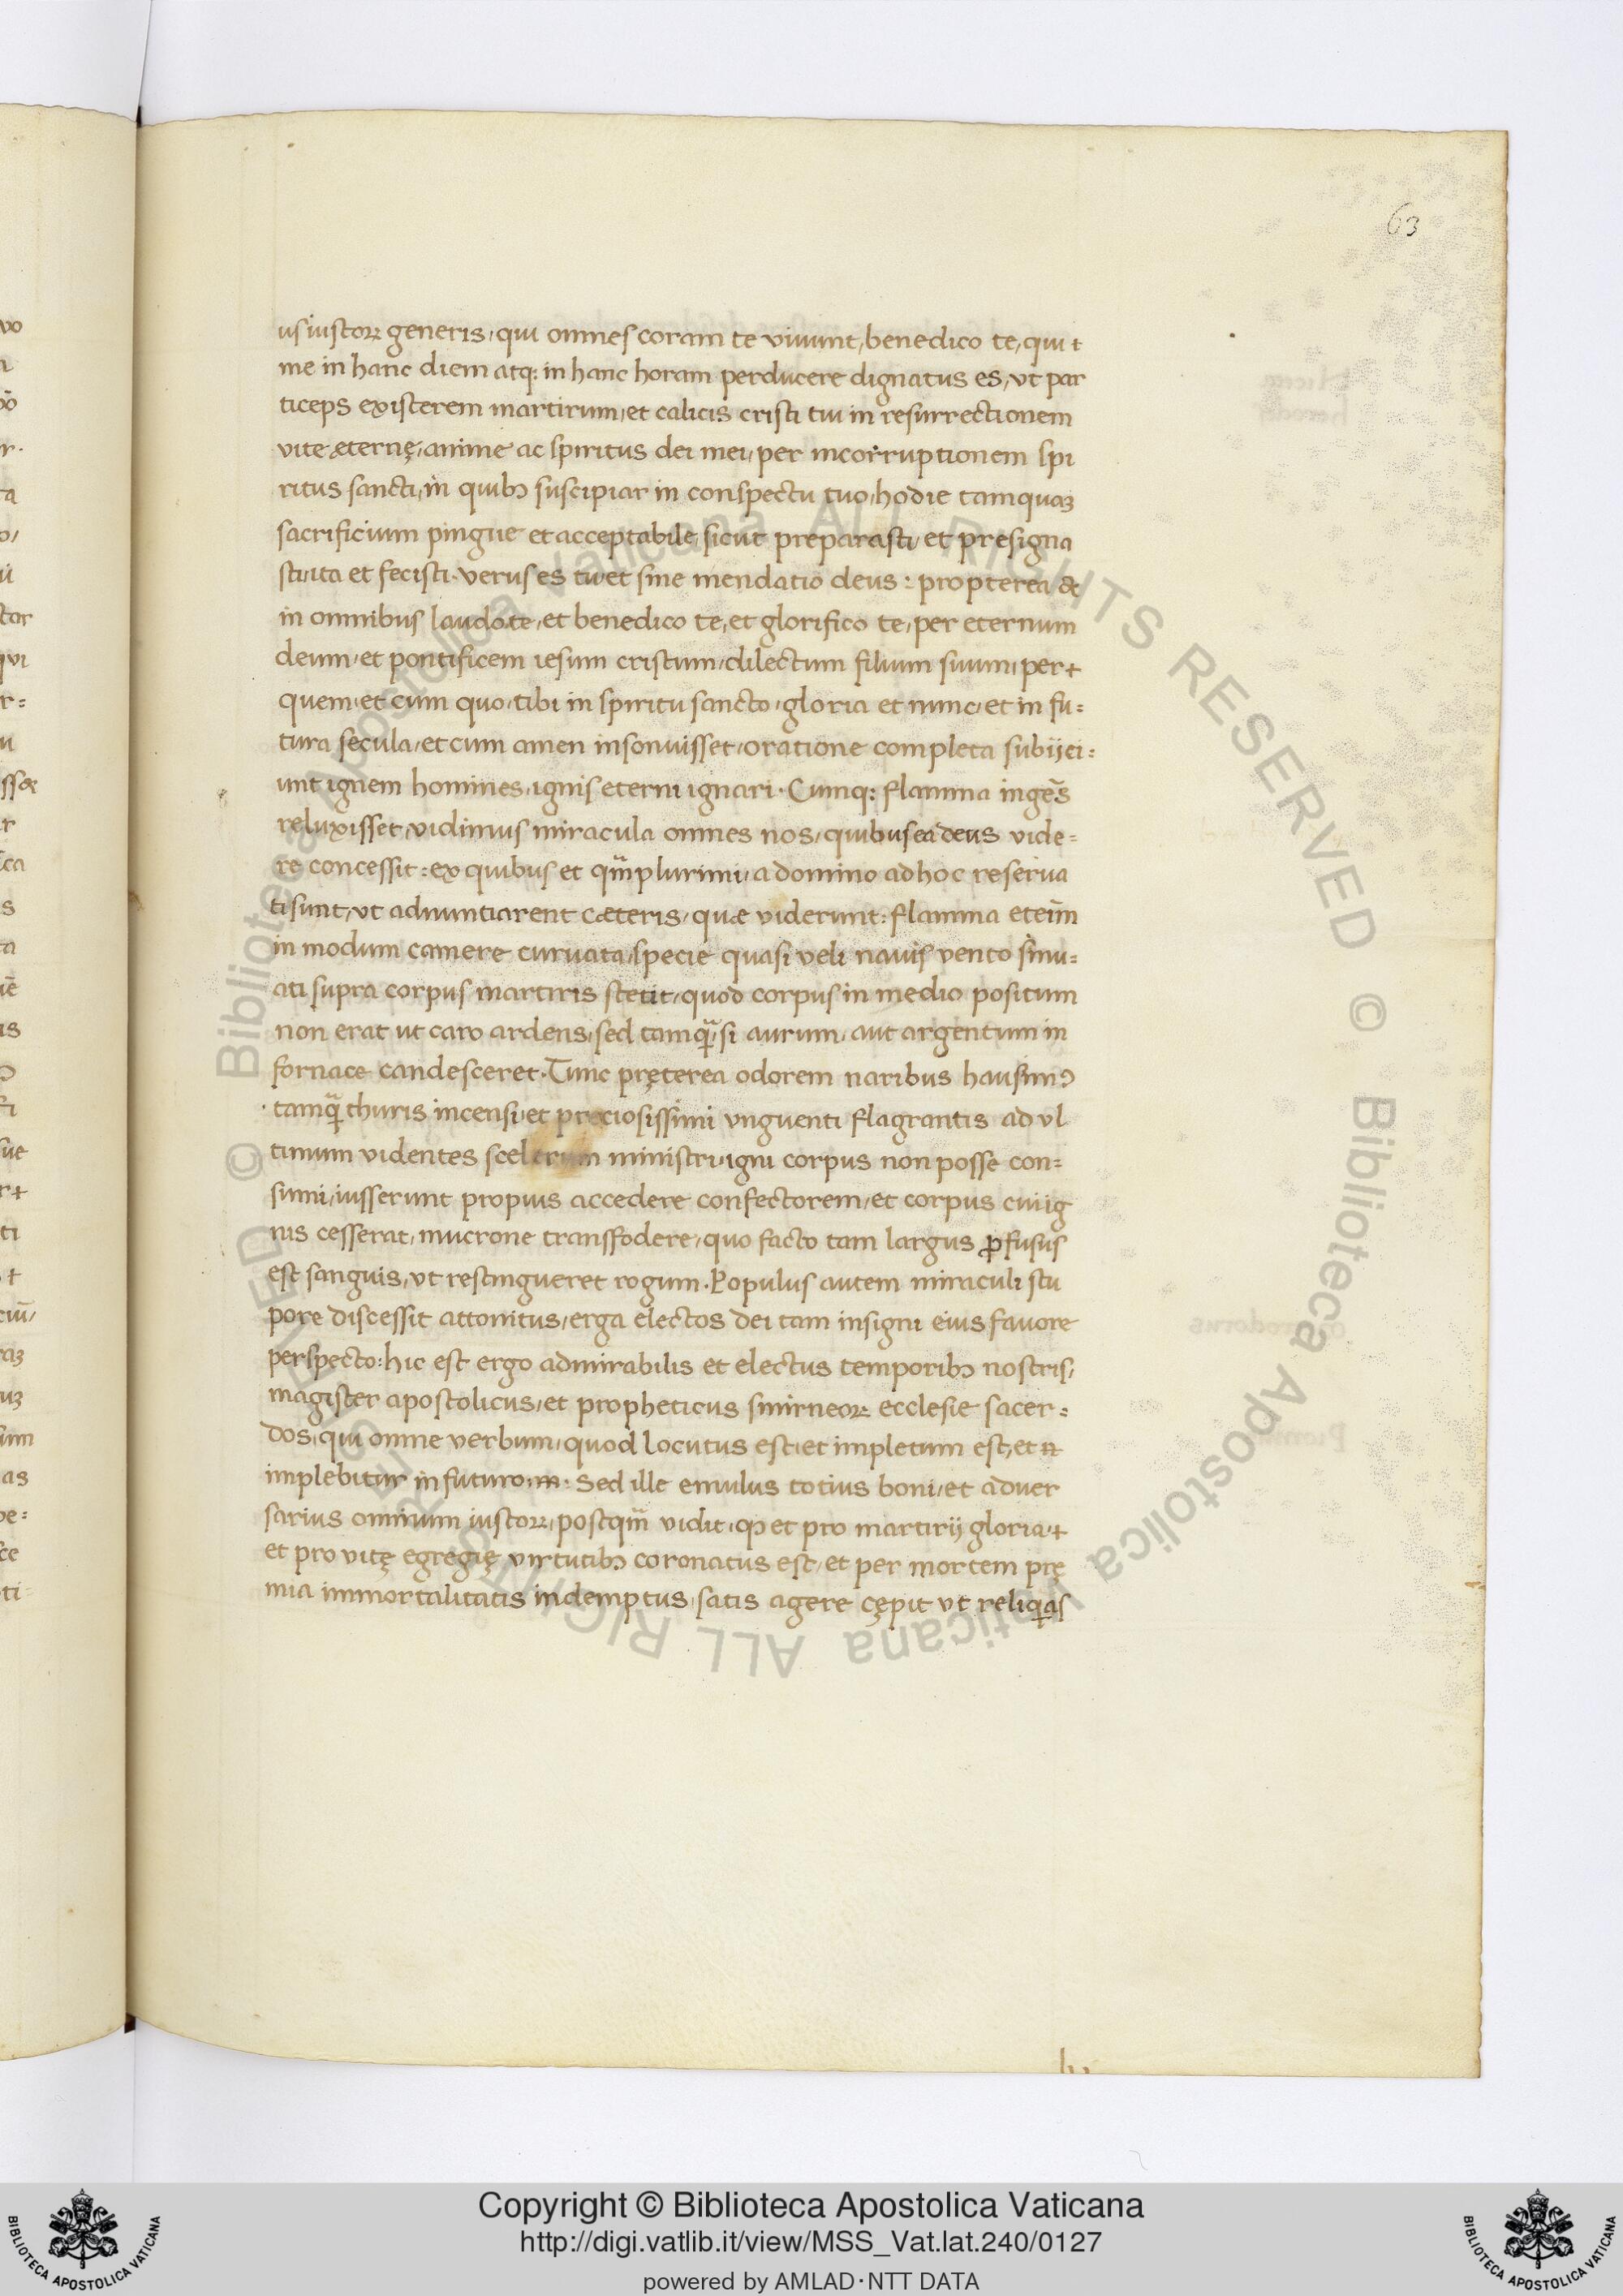 63
us iustoꝝ generis, qui omnes coram te viuunt, benedico te, qui t
me in hanc diem atq: in hanc horam perducere dignatus es, vt par
ticeps existerem martirum, et calicis cristi tui in resurrectionem
vite æternę, anime ac spiritus dei mei, per incorruptionem spi
ritus sancti, in quibꝰ suscipiar in conspectu tuo, hodie tamquaꝫ
sacrificium pingue et acceptabile, sicut preparasti, et presigna
sti, ita et fecisti. verus es tu et sine mendatio deus: propterea &
in omnibus laudo te, et benedico te, et glorifico te, per eternum
deum, et pontificem iesum cristum, dilectum filium suum, per +
quem, et cum quo, tibi in spiritu sancto, gloria et nunc, et in fu=
tura secula, et cum amen insonuisset, oratione completa subijci=
unt ignem homines, ignis eterni ignari. Cumq: flamma ingēs
reluxisset, vidimus miracula omnes nos, quibus ea deus vide=
re concessit: ex quibus et qm̄plurimi, a domino ad hoc reserua
ti sunt, vt adnuntiarent cæteris, quæ viderunt: flamma eteim̄
in modum camere curuata, specie quasi veli nauis vento sinu=
ati supra corpus martiris stetit, quod corpus in medio positum
non erat ut caro ardens, sed tamqȝ̄, si aurum, aut argentum in
fornace candesceret. Tunc pręterea odorem naribus hausimꝰ
tamqȝ̄ thuris incensi, et preciosissimi vnguenti flagrantis ad vl
timum videntes scelerum ministri, igni corpus non posse con=
sumi, iusserunt propius accedere confectorem, et corpus cui ig
nis cesserat, mucrone transfodere, quo facto tam largus ꝓfusus
est sanguis, vt restingueret rogum. Populus autem miraculi stu
pore discessit attonitus, erga electos dei tam insigni eius fauore
perspecto: hic est ergo admirabilis et electus temporibꝰ nostris,
magister apostolicus, et propheticus smirneoꝝ ecclesie sacer=
dos, qui omne verbum, quod locutus est, et impletum est, et
implebitur in futuro. Sed ille emulus totius boni, et aduer
sarius omnium iustoꝝ, postqm̄ vidit, ꝙ et pro martirij gloria, +
et pro vitę egregię virtutibꝰ coronatus est, et per mortem prę
mia immortalitatis indemptus, satis agere cępit vt reliqias
Copyright © Biblioteca Apostolica Vaticana
http://digi.vatlib.it/view/MSS_Vat.lat.240/0127
powered by AMLAD·NTT DATA
BIBLIOTECA APOSTOLICA VATICANA
BIBLIOTECA APOSTOLICA VATICANA
© Biblioteca Apostolica Vaticana ALL RIGHTS RESERVED © Biblioteca Apostolica Vaticana ALL RIGHTS RESERVED